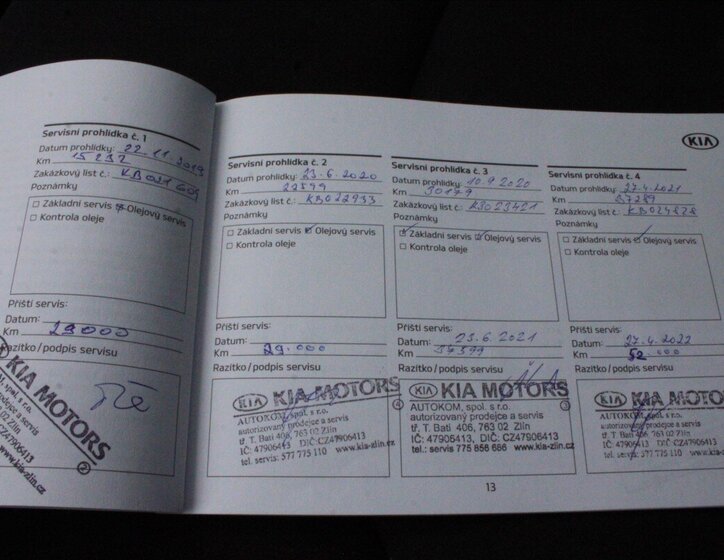 KIA
Servisní prohlídka č. 1
Datum prohlídky: 22.11.2019
Km 15 232
Zakázkový list č.:
Poznámky
Základní servis Olejový servis
Kontrola oleje
Příští servis:
Datum:
Km 29000
Razítko/podpis servisu
KIA MOTORS
AUTOKOM, spol. s r.o.
prodejce a servis
763 02 Zlín
CZ47906413
www.kia-zlin.cz
2
Servisní prohlídka č. 2
Datum prohlídky: 23.6 2020
Km
Zakázkový list č.: KB022933
Poznámky
Základní servis Olejový servis
Kontrola oleje
Příští servis:
Datum:
Km 29.000
Razítko/podpis servisu
KIA KIA MOTORS
AUTOKOM, spol. s r.o.
autorizovaný prodejce a servis
tř. T. Bati 406, 763 02 Zlín
IČ: 47906413, DIČ:CZ47906413
tel. servis: 577 775 110 www.kia-zlin.cz
4
Servisní prohlídka č. 3
Datum prohlídky: 10.9 2020
Km 30179
Zakázkový list č.: KB023421
Poznámky
Základní servis Olejový servis
Kontrola oleje
Příští servis:
Datum: 23.6.2021
Km
Razítko/podpis servisu
KIA KIA MOTORS
AUTOKOM, spol. s r.o.
autorizovaný prodejce a servis
tř. T. Bati 406, 763 02 Zlín
IČ: 47906413, DIČ: CZ47906413
tel.: servis 775 858 686 www.kia-zlin.cz
3
Servisní prohlídka č. 4
Datum prohlídky: 27.4.2021
Km 37289
Zakázkový list č.: KB024828
Poznámky
Základní servis Olejový servis
Kontrola oleje
Příští servis:
Datum: 27.4.2022
Km 52.000
Razítko/podpis servisu
KIA KIA MOTORS
AUTOKOM, spol. s r.o.
autorizovaný prodejce a servis
tř. T. Bati 406, 763 02 Zlín
IČ: 47906413, DIČ:CZ47906413
tel. servis: 577 775 110
13